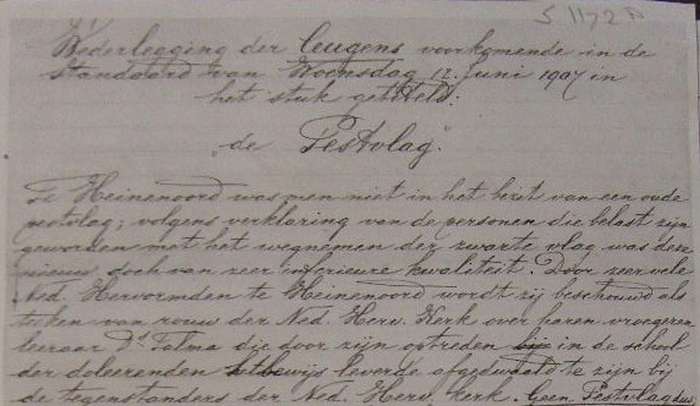 S 1172
Wederlegging der leugens voorkomende in de
Standaard van Woensdag 12 Juni 1907 in
het stuk getiteld:
"de Pestvlag."
Te Heinenoord was men niet in het bezit van een oude
pestvlag; volgens verklaring van de personen die belast zijn
geworden met het wegnemen der zwarte vlag was deze
nieuw doch van zeer inferieure kwaliteit. Door zeer vele
Ned. Hervormden te Heinenoord wordt zij beschouwd als
teeken van rouw der Ned. Herv. Kerk over haren vroegeren
leeraar Ds. Talma die door zijn optreden in de school
der doleerenden het bewijs leverde afgedwaald te zijn bij
de tegenstanders der Ned. Herv. kerk. Geen Pestvlag dus